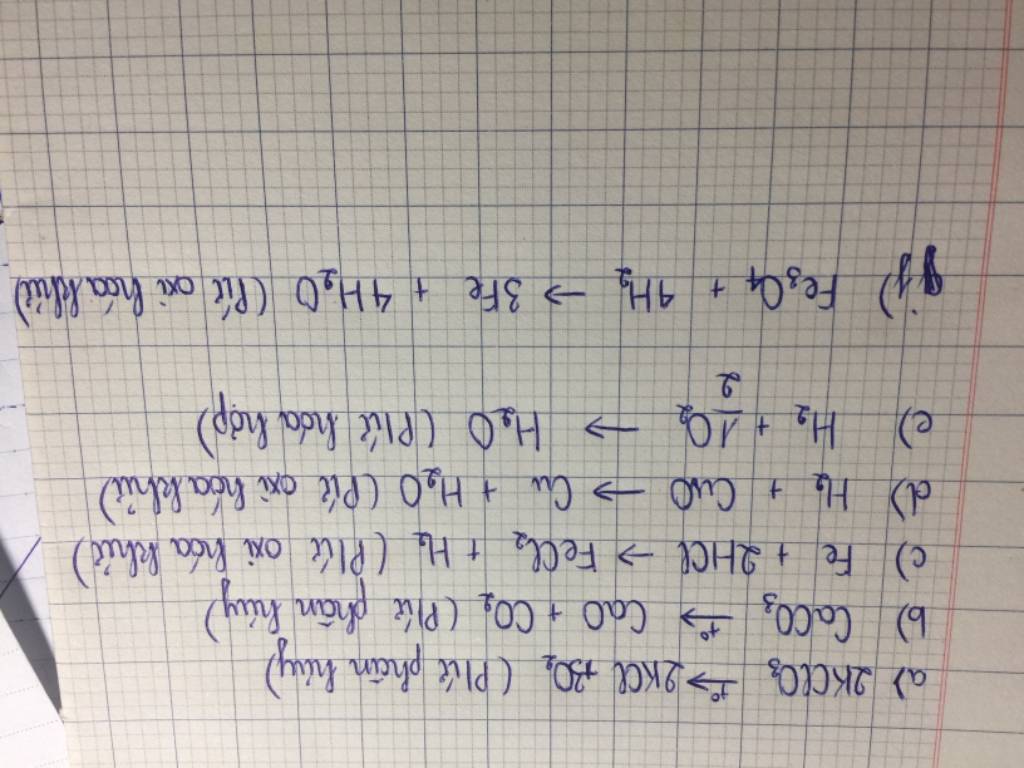 a) 2KClO₃ →t° 2KCl + 3O₂ (Pứ phân hủy)
b) CaCO₃ →t° CaO + CO₂ (Pứ phân hủy)
c) Fe + 2HCl → FeCl₂ + H₂ (Pứ oxi hóa khử)
d) H₂ + CuO → Cu + H₂O (Pứ oxi hóa khử)
e) H₂ + 1/2 O₂ → H₂O (Pứ hóa hợp)
f) Fe₃O₄ + 4H₂ → 3Fe + 4H₂O (Pứ oxi hóa khử)